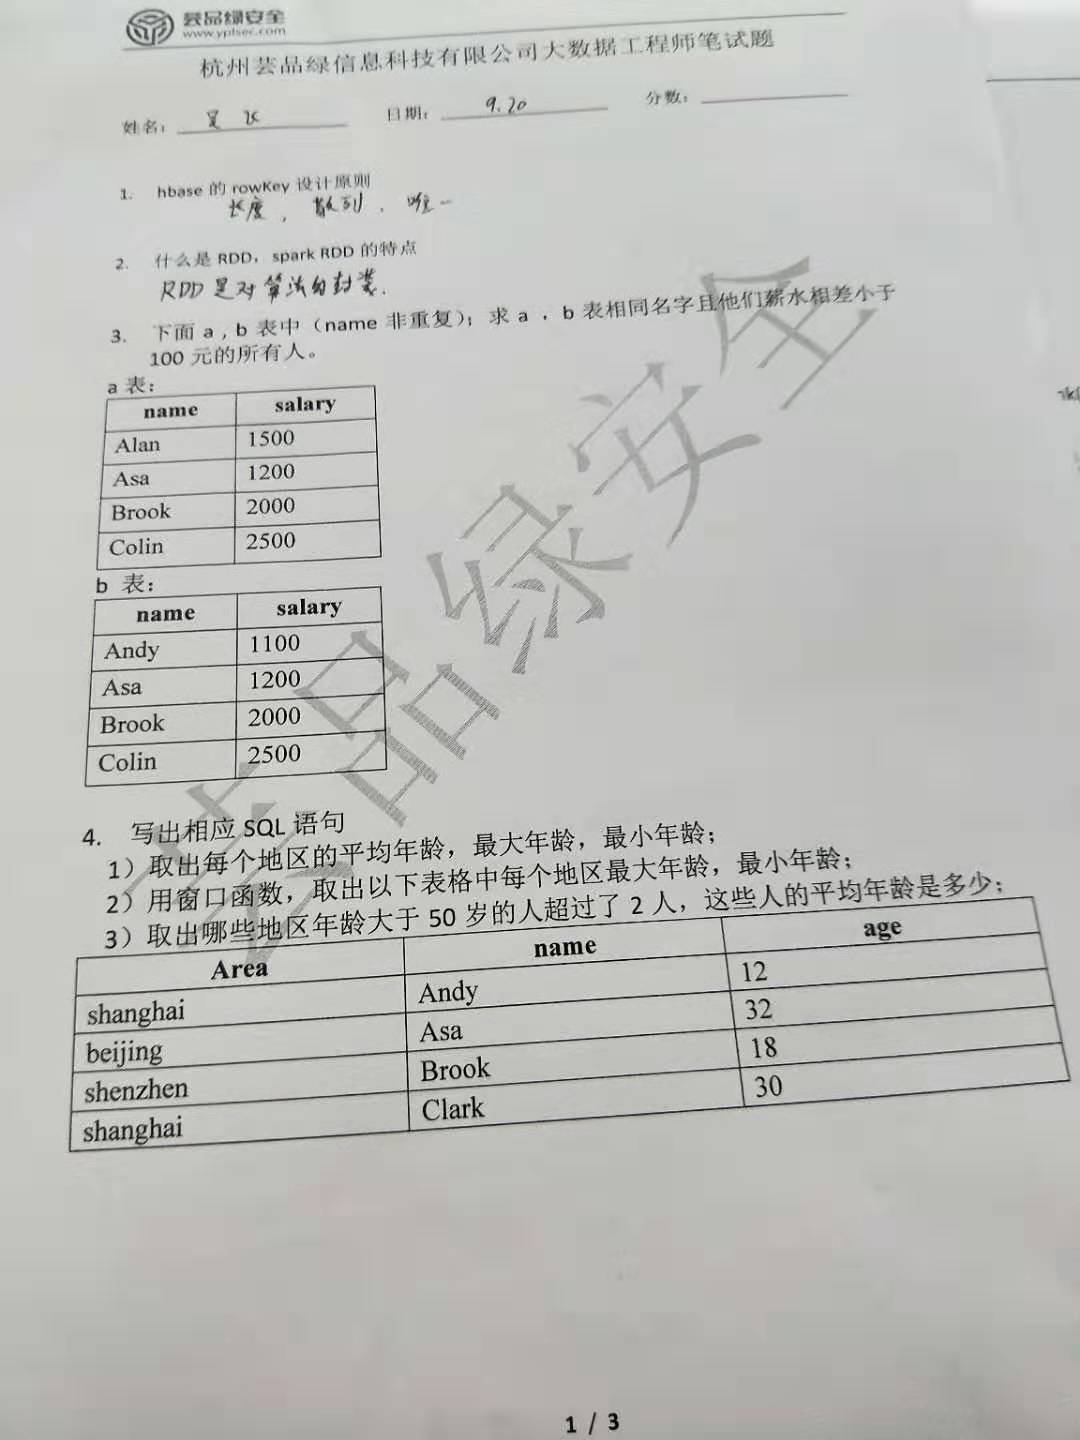 芸品绿安全
www.yplsec.com
杭州芸品绿信息科技有限公司大数据工程师笔试题
姓名：
日期： 9.20
分数：
1. hbase 的 rowKey 设计原则
长度，散列．唯一
2. 什么是 RDD，spark RDD 的特点
RDD 是对算法的封装.
3. 下面 a , b 表中（name 非重复）；求 a ，b 表相同名字且他们薪水相差小于
100 元的所有人。
a 表：
name salary
Alan 1500
Asa 1200
Brook 2000
Colin 2500
b 表：
name salary
Andy 1100
Asa 1200
Brook 2000
Colin 2500
4. 写出相应 SQL 语句
1）取出每个地区的平均年龄，最大年龄，最小年龄；
2）用窗口函数，取出以下表格中每个地区最大年龄，最小年龄；
3）取出哪些地区年龄大于 50 岁的人超过了 2 人，这些人的平均年龄是多少；
Area name age
shanghai Andy 12
beijing Asa 32
shenzhen Brook 18
shanghai Clark 30
芸品绿安全
1 / 3